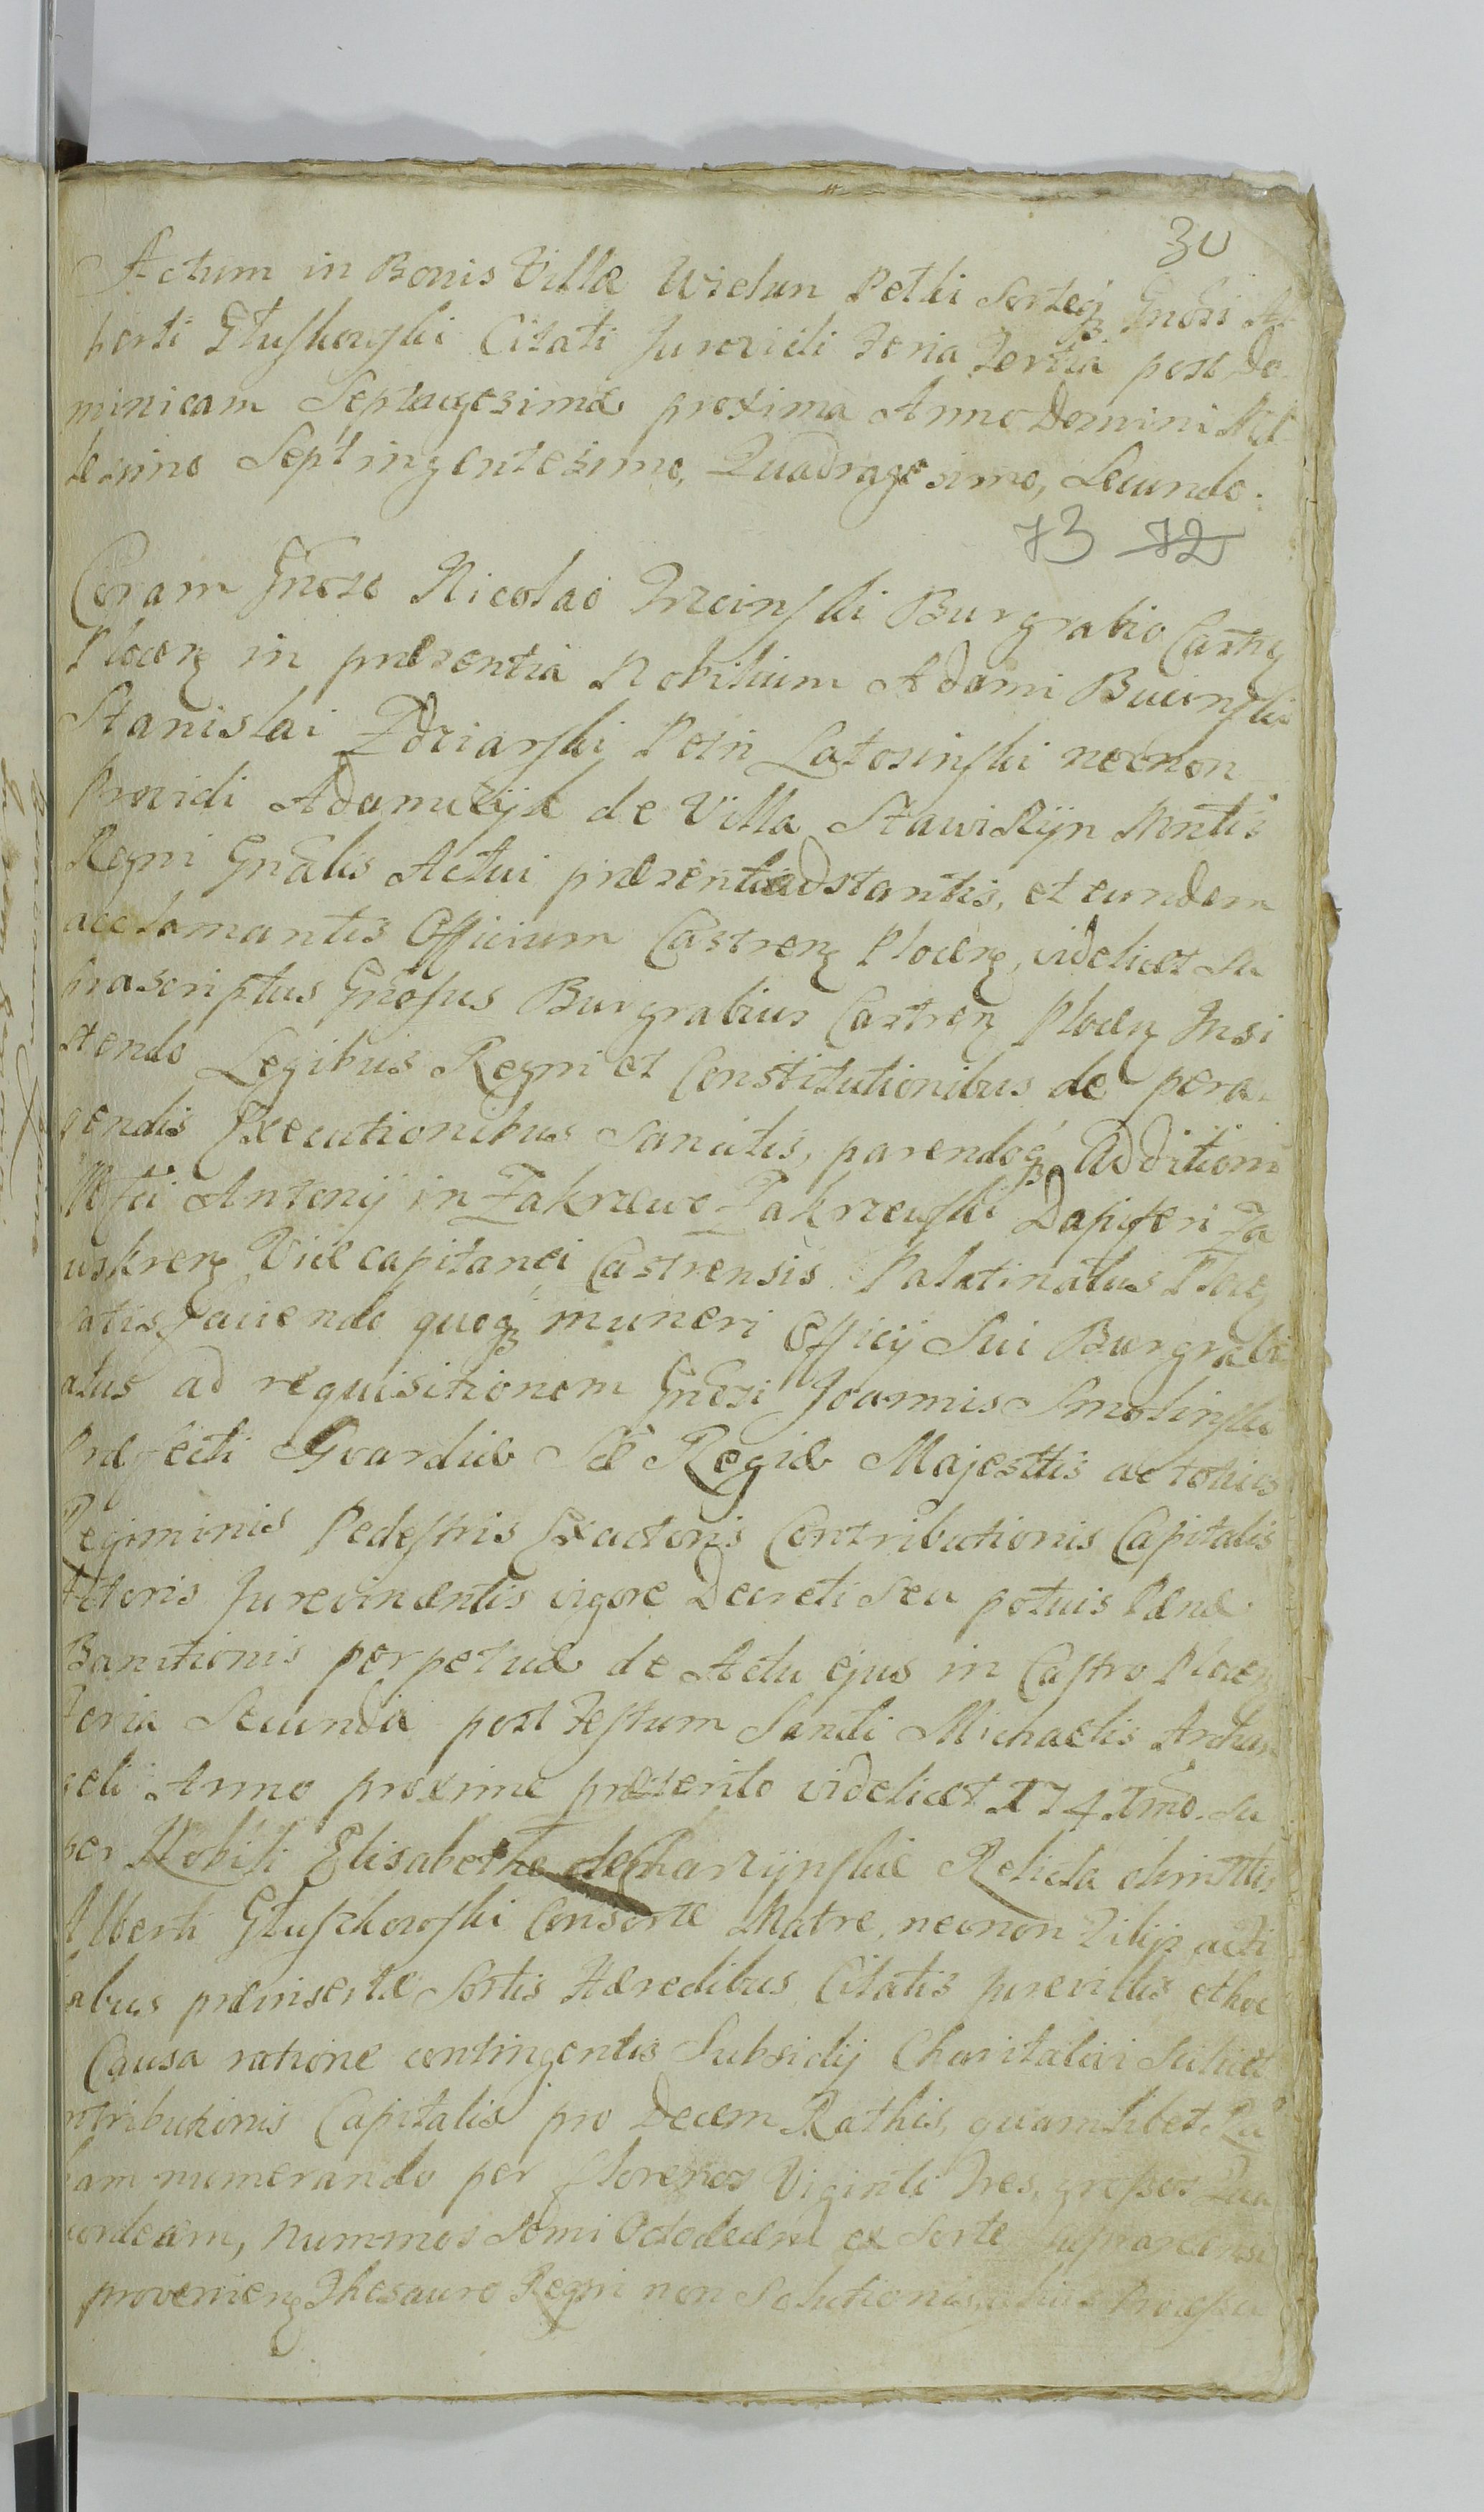 30
Actum in Bonis Villæ Wielun Petki Sorteqȝ Gnosi Al
berti Głuskowski Citati Jurevicti Feria Tertia post Do
minicam Septuagesimæ proxima Anno Domini Mil
lesimo Septingentesimo, Quadragesimo, Secundo.
73 72
Coram Gnoso Nicolao Trzcinski Burgrabio Castreȝ
Plocenȝ in præsentia Nobilium Adami Bucinski
Stanislai Zdziarski Petri Latosinski necnon
Providi Adamczÿk de Villa Stawiszÿn Mntis
Regni Gnalis Actui præsenti adstantis, et eundem
acclamantis Officium Castrenȝ Plocenȝ, videlicet Su
prascriptus Gnosus Burgrabius Castrenȝ Plocenȝ Insi
stendo Legibus Regni et Constitutionibus de pera
gendis Executionibus Sancitis, parendoqȝ Additioni
Mfci Antonij in Zakrzewo Zakrzewski Dapiferi Za
uskrenȝ Vicecapitanei Castrensis Palatinatus Plocȝ
satisfaciendo quoqȝ muneri Officij Sui Burgrabi
atus ad requisitionem Gnosi Joannis Smolinski
Præfecti Gvardiæ Sæ Regiæ Majesttis ac totius
Regiminis Pedestris Exactoris Contributionis Capitalis
Actoris Jurevincentis vigore Decreti Seu potius Pænæ
Banitionis perpetuæ de Actu ejus in Castro Plocenȝ
Feria Secunda post Festum Sancti Michaelis Archan
geli Anno proxime præterito videlicet 1741mo. Su
per Nobili Elisabetha de Charzÿnskie Relicta olim
Alberti Głuschowski Consorte Matre, necnon Filijs ac Fi
abus præinsertæ Sortis Hæredibus Citatis Jurevictis et hoc
Causa ratione contingentis Subsidij Charitativi Scilicet
ntributionis Capitalis pro Decem Rathis, quamlibet Ra
ham numerando per florenos Viginti Tres, grossos Qua
uordecim, nummos Somi Octodecim ex Sorte
provenienȝ Thesauro Regni non Solutionis,